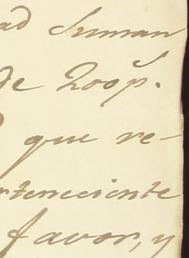 ad suman
de 200p.
que re-
rteneciente
favor, y